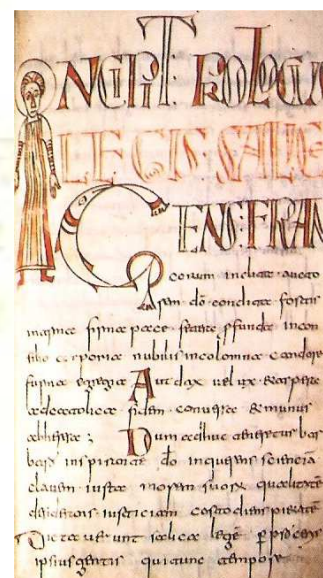 INCIPIT PROLOGU
LEGIS SALICE
GENS FRAN
corum inclita aucto
dō condita fortis
firma pace pfunda incon
silio corporea nubilis incolomna candore
egregia Audax uelux & aspera
ad catholica fidem conuersa & inmunis
Dum adhuc teneretur bar
inspirante dō inquerens sciencia
clauem iusta morem suorum qualitate
iusticiam costodiens pietate
Dictauerunt salica lege
ipsius gentis qui tunc tempore